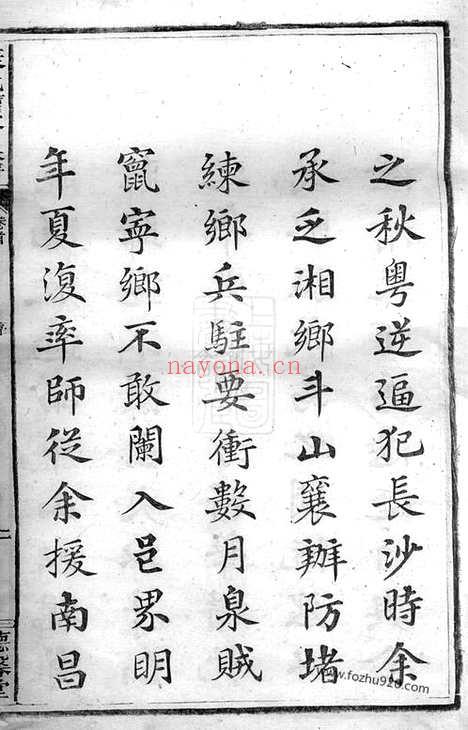 之秋粵逆逼犯長沙時余
承乏湘鄉斗山襄辦防堵
練鄉兵駐要衝數月梟賊
竄寧鄉不敢闌入邑界明
年夏復率師從余援南昌
卷首
nayona.cn
www.fozhu920.com